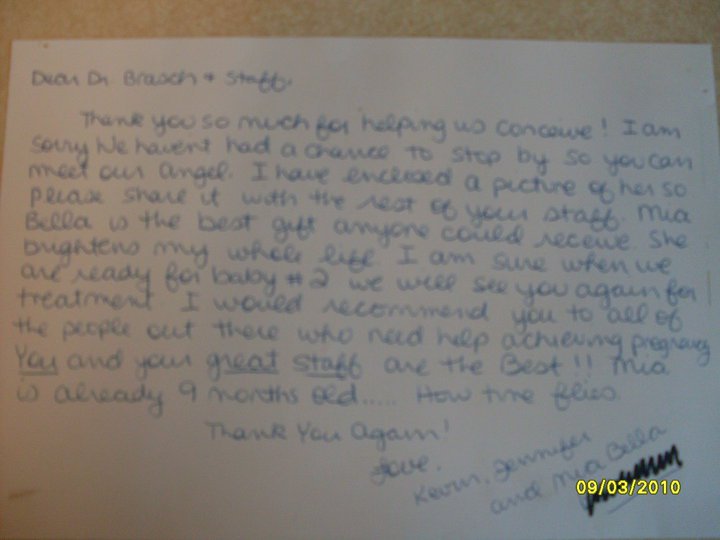 Dear Dr. Brasch + Staff,
Thank you so much for helping us conceive! I am
sorry We havent had a chance to stop by so you can
meet our angel. I have enclosed a picture of her so
please share it with the rest of your staff. Mia
Bella is the best gift anyone could receive. She
brightens my whole life. I am sure when we
are ready for baby #2 we will see you again for
treatment. I would recommend you to all of
the people out there who need help achieving pregnancy
You and your great staff are the Best!! Mia
is already 9 months old..... How time flies.
Thank You Again!
Love,
Kevin, Jennifer
and Mia Bella
09/03/2010